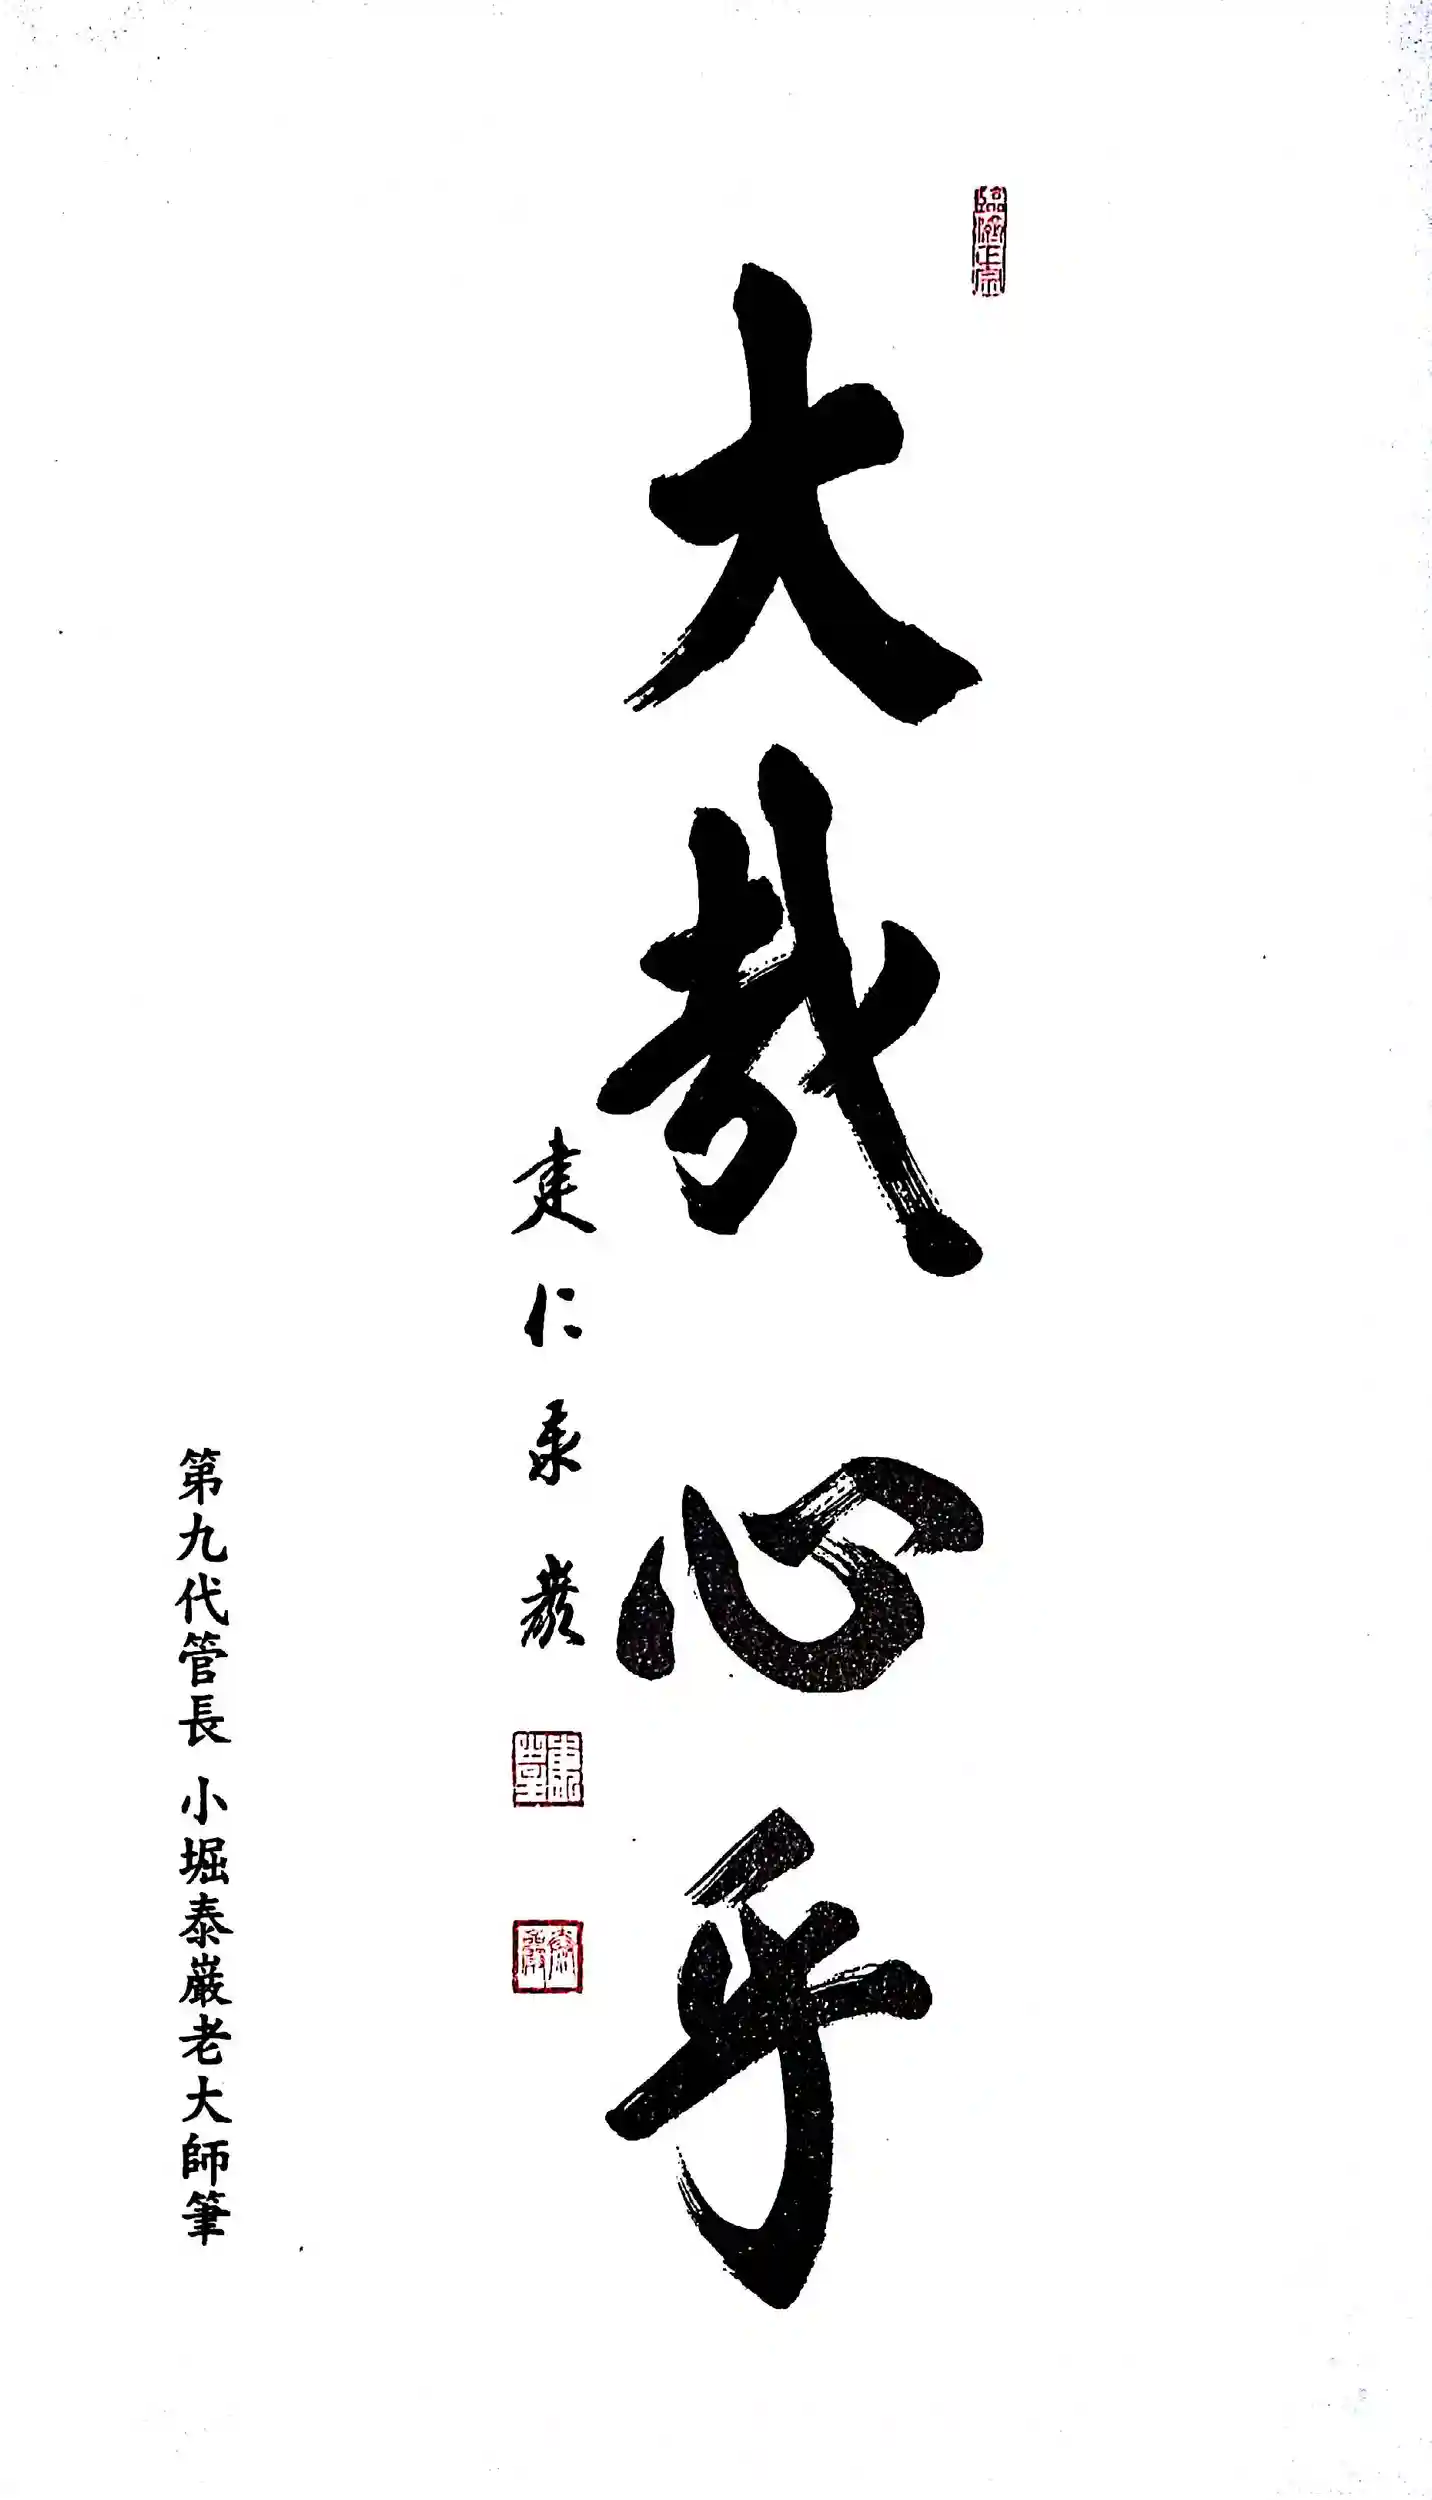 臨済正宗
大哉心乎
建仁泰巌
第九代管長 小堀泰巌老大師筆